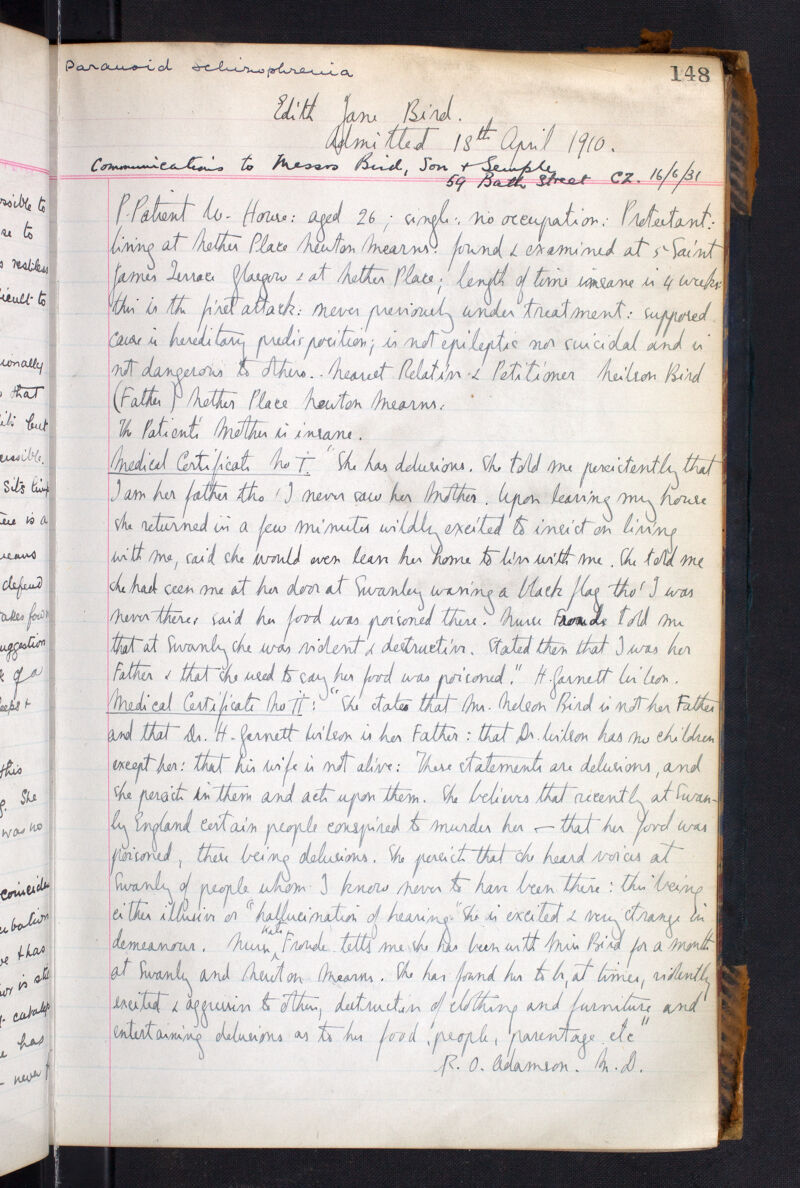 Paranoid schizophrenia
148
Edith Jane Bird.
Admitted 18th April 1910.
Communications to Messrs Bird, Son & Semple
59 Bath Street C2. 16/6/31
P. Patient W. House: aged 26; single: no occupation: Protestant:
living at Nether Place Newton Mearns: found & examined at 5 Saint
James Terrace Glasgow & at Nether Place; length of time insane is 4 weeks:
this is the first attack: never previously under treatment: supposed
cause is hereditary predisposition; is not epileptic nor suicidal and is
not dangerous to others. Nearest Relative & Petitioner Neilson Bird
(Father) Nether Place Newton Mearns.
The Patient's Mother is insane.
Medical Certificate No I. "She has delusions. She told me persistently that
I am her father tho' I never saw her Mother. Upon leaving my house
she returned in a few minutes wildly excited to insist on living
with me, said she would even leave her home to live with me. She told me
she had seen me at her door at Swanley waving a black flag tho' I was
never there, said her food was poisoned there. Nurse Froude told me
that at Swanley she was violent & destructive. Stated then that I was her
Father & that she used to say her food was poisoned." H. Garnett Wilson.
Medical Certificate No II: "She states that Mr. Nelson Bird is not her Father
and that Dr. H. Garnett Wilson is her Father: that Dr. Wilson has no children
except her: that his wife is not alive: These statements are delusions, and
she persists in them and acts upon them. She believes that recently at Swan-
ley England certain people conspired to murder her — that her food was
poisoned, these being delusions. She persists that she heard voices at
Swanley of people whom I know never to have been there: this being
either illusive or "hallucination of hearing." She is excited & very strange in
demeanour. Nurse Froude tells me she has been with Miss Bird for a month
at Swanley and Newton Mearns. She has found her to be, at times, violently
excited & aggressive to others, destructive of clothing and furniture and
entertaining delusions as to her food, people, parentage etc"
R. O. Adamson. M.D.